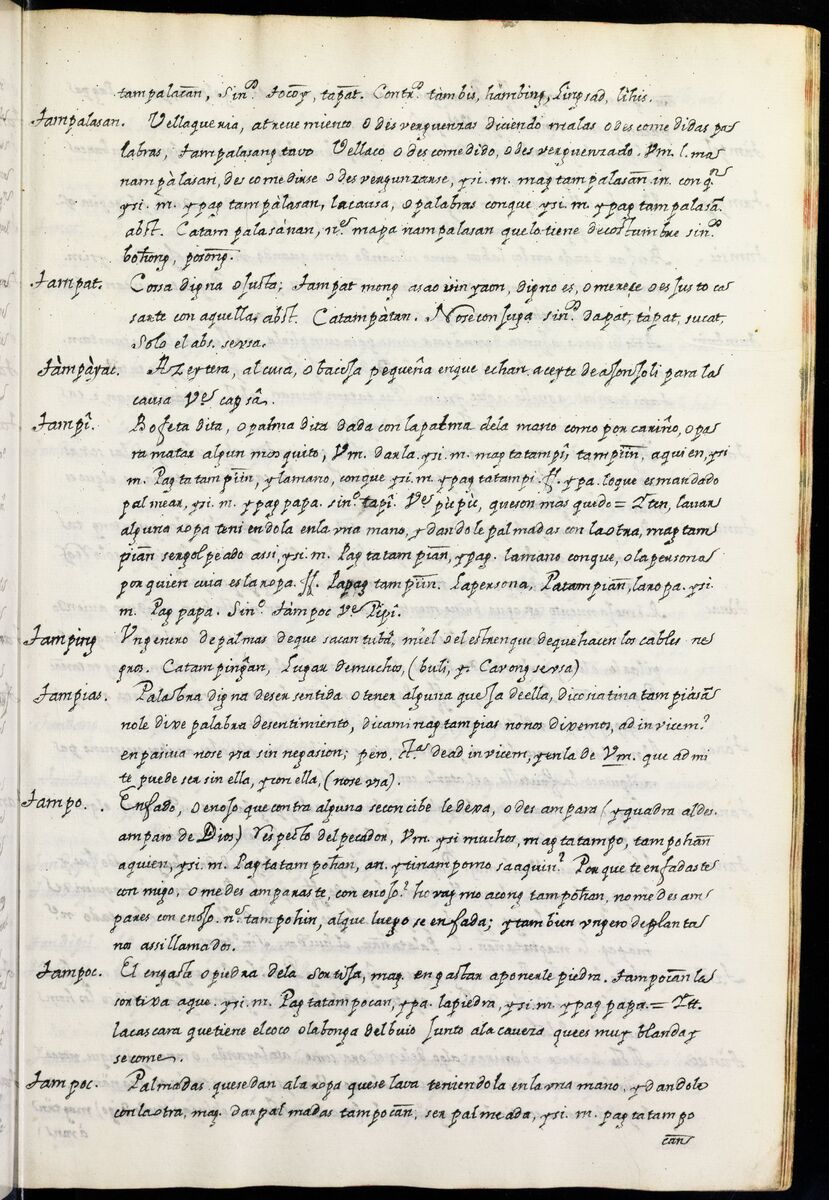 tampalacãn, Sinº. tocoy, tapat. Contrº. tambis, hambing, lingsad, lihis.
tampalasan. Vellaqueria, atrevemiento o des verguenzas diciendo malas o des come didas pa
labras, tampalasang tavo Vellaco o descomedido, o des verguenzado. Vm. l. ma
nampàlasan, des comedirse o des vergunzarse, y si. m. mag tampalasañ. in. con qn
y si. m. y pag tampàlasan, la causa, o palabras con que y si. m. y pag tampalasã.
abst. Catam palasánan, nᵉ. mapa nampalasan que lo tiene de costumbre sinº
bohong, posong.
tampat. Cossa digna o Justa; tampat mong asaoўin yaon, digno es, o mereçe o es Justo ca
sarte con aquella, abst. Catampàtan. No se conjuga sinº. dapat, tàpat, sucat,
Solo el abs. se usa.
tàmpàyac. Azeytera, alcusa, o bacija pequeña en que echan aceyte de ajonjoli para la
causa Vᵉ capsã.
tampî. Bofeta dita, o palma dita dada con la palma dela mano como por cariño, o pa
ra matar algun mosquito, Vm. darla, y si. m. mag tatampiĩ, tampiĩn, aquien, y si
m. Pag ta tampiĩn, y la mano, con que y si. m. y pag tatampi. ff. y pa. loque es mandado
palmear, y si. m. y pag papa. sinº. tapî. Vᵉ picpic, que son mas quedo = Yten, lavar
alguno ropa teni endola en la vna mano, y dandole palmadas con la otra, mag tam
piãn ser golpeado assi, y si. m. Pag ta tam piãn, y pag. la mano con que, o la persona
por quien cuia es la ropa. ff. Papag tampiĩn. La persona, Patampiãn, la ropa. y si.
m. Pag papa. Sinº. támpoc Vᵉ Pipî.
tamping Vn genero de palmas de que sacan tubâ, miel o el estrenque de que hacen los cables ne
gros. Catampingãn, Lugar de muchos, (buli, y. Cavong se usa)
tampias. Palabra digna de ser sentida o tener alguna queja de ella, di co siatina tampiásã
no le dixe palabra de sentimiento, di cami nag tampias no nos diximos, ad invicem.
en pasiva no se usa sin negasion; pero, de ad invicem, y en la de Vm. que ad mi
te puede ser sin ella, y con ella, (no se usa).
tampo. Enfado, o enojo que contra alguno se concibe le dexa, o des ampara (y quadra al des
amparo de Dios) respecto del pecador, Vm. y si muchos, mag tatampo, tampohãn
aquien, y si. m. Pag tatam pohan, an. y tinampomo sa aquin? Por que te enfadaste
con migo, o me des amparaste, con enojo? hovag mo acong tampohan, no me des am
pares con enojo. nᵉ tampohin, al que luego se enfada; y tambien vn gero de planta
nos assi llamados.
tampoc. El engaste o piedra dela sortija, mag. en gastar aponerle piedra. tampocãn la
sortixa aque. y si. m. Pag tatampocan, y pa. la piedra, y si. m y pag papa. = Ytt.
la cascara que tiene el coco o la bonga del buio Junto ala caveza que es muy blanda y
se come.
tampoc. Palmadas que se dan ala ropa que se lava teniendola en la vna mano, y dandole
con la otra, mag. dar palmadas tampocãn, ser palmeada, y si. m. pag ta tampo
can